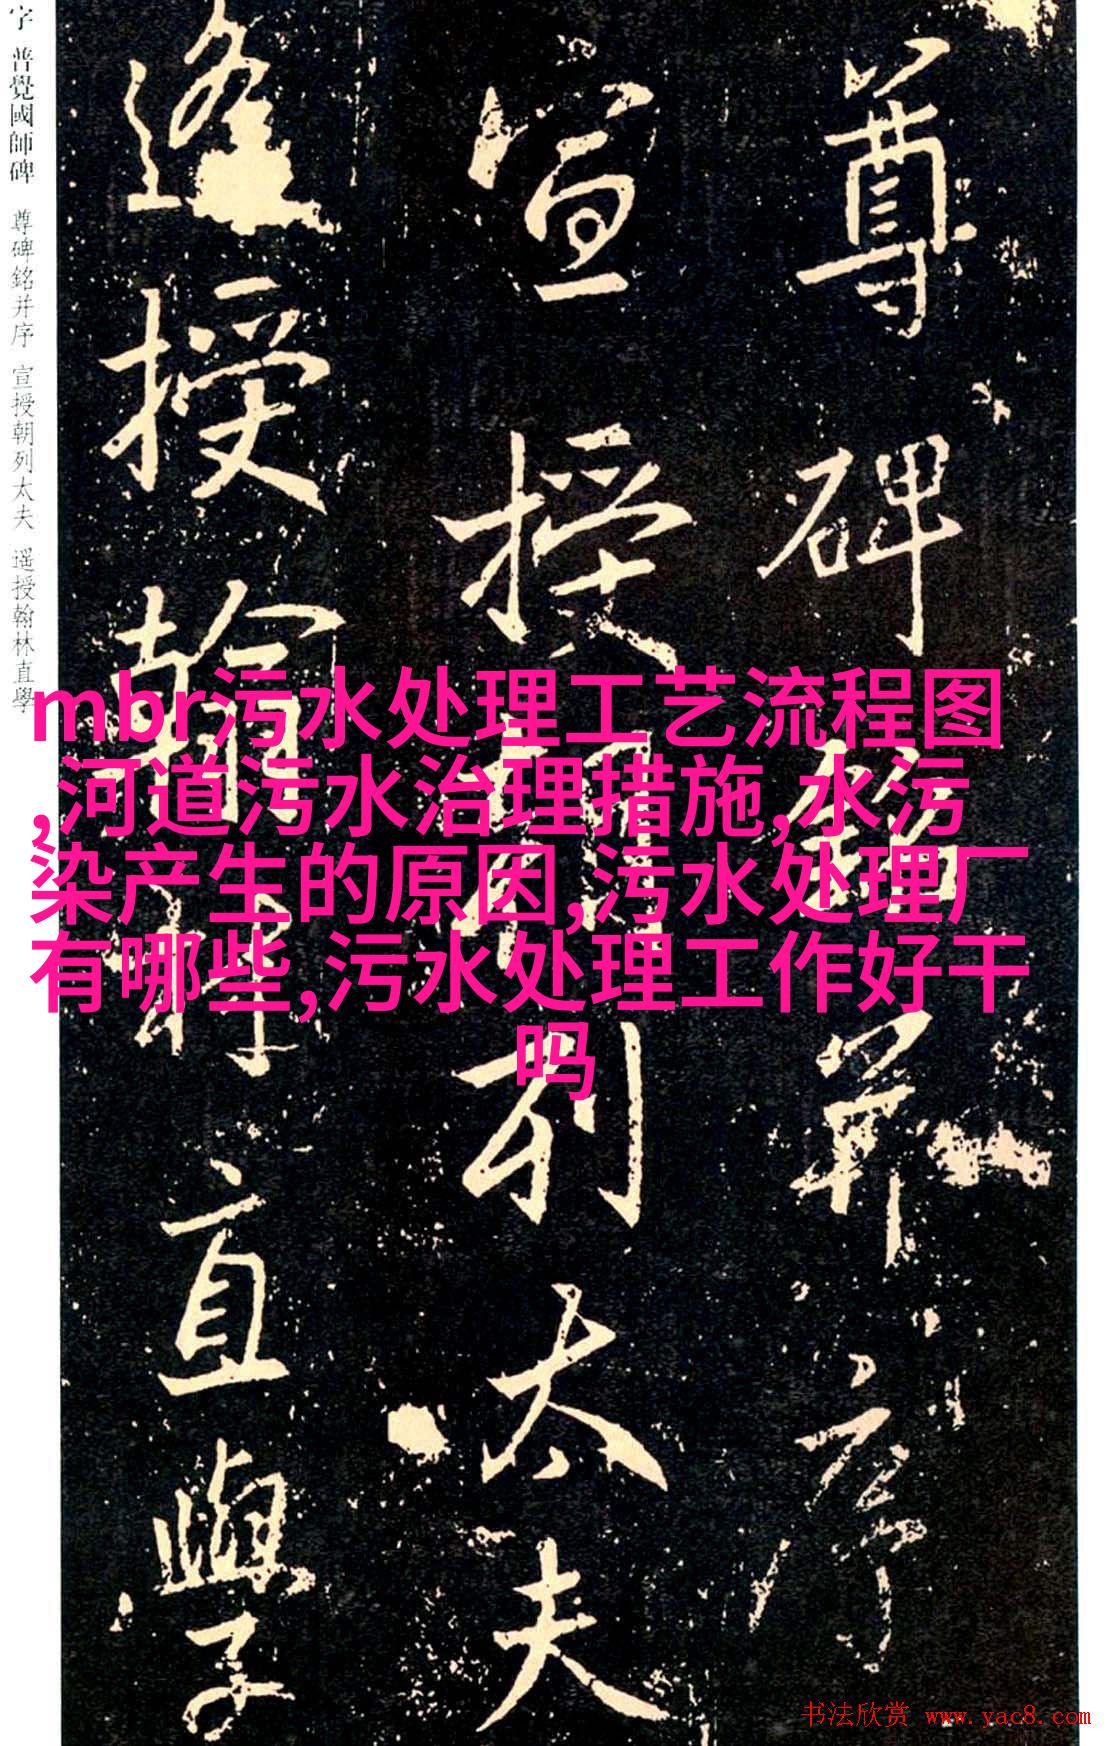 字 普覺國師碑 尊碑銘并序 宣授朝列太夫 遥授翰林直學
尊碑銘并序
宣授朝列太夫
遙授翰林直學
mbr污水处理工艺流程图
,河道污水治理措施,水污
染产生的原因,污水处理厂
有哪些,污水处理工作好干
吗
书法欣赏 www.yac8.com